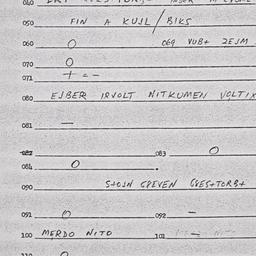 050 FIN A KUJL/BIKS
060 O 069 VUB+ ZEJM
070 O
071 + = -
080 EJBER IRVOLT NITKUMEN VOLTIX
081 —
082 083 O
084 O
090 S+OJN GPEVEN GVES+TORB+
091 O 092 —
100 MERDO NITO 101 —